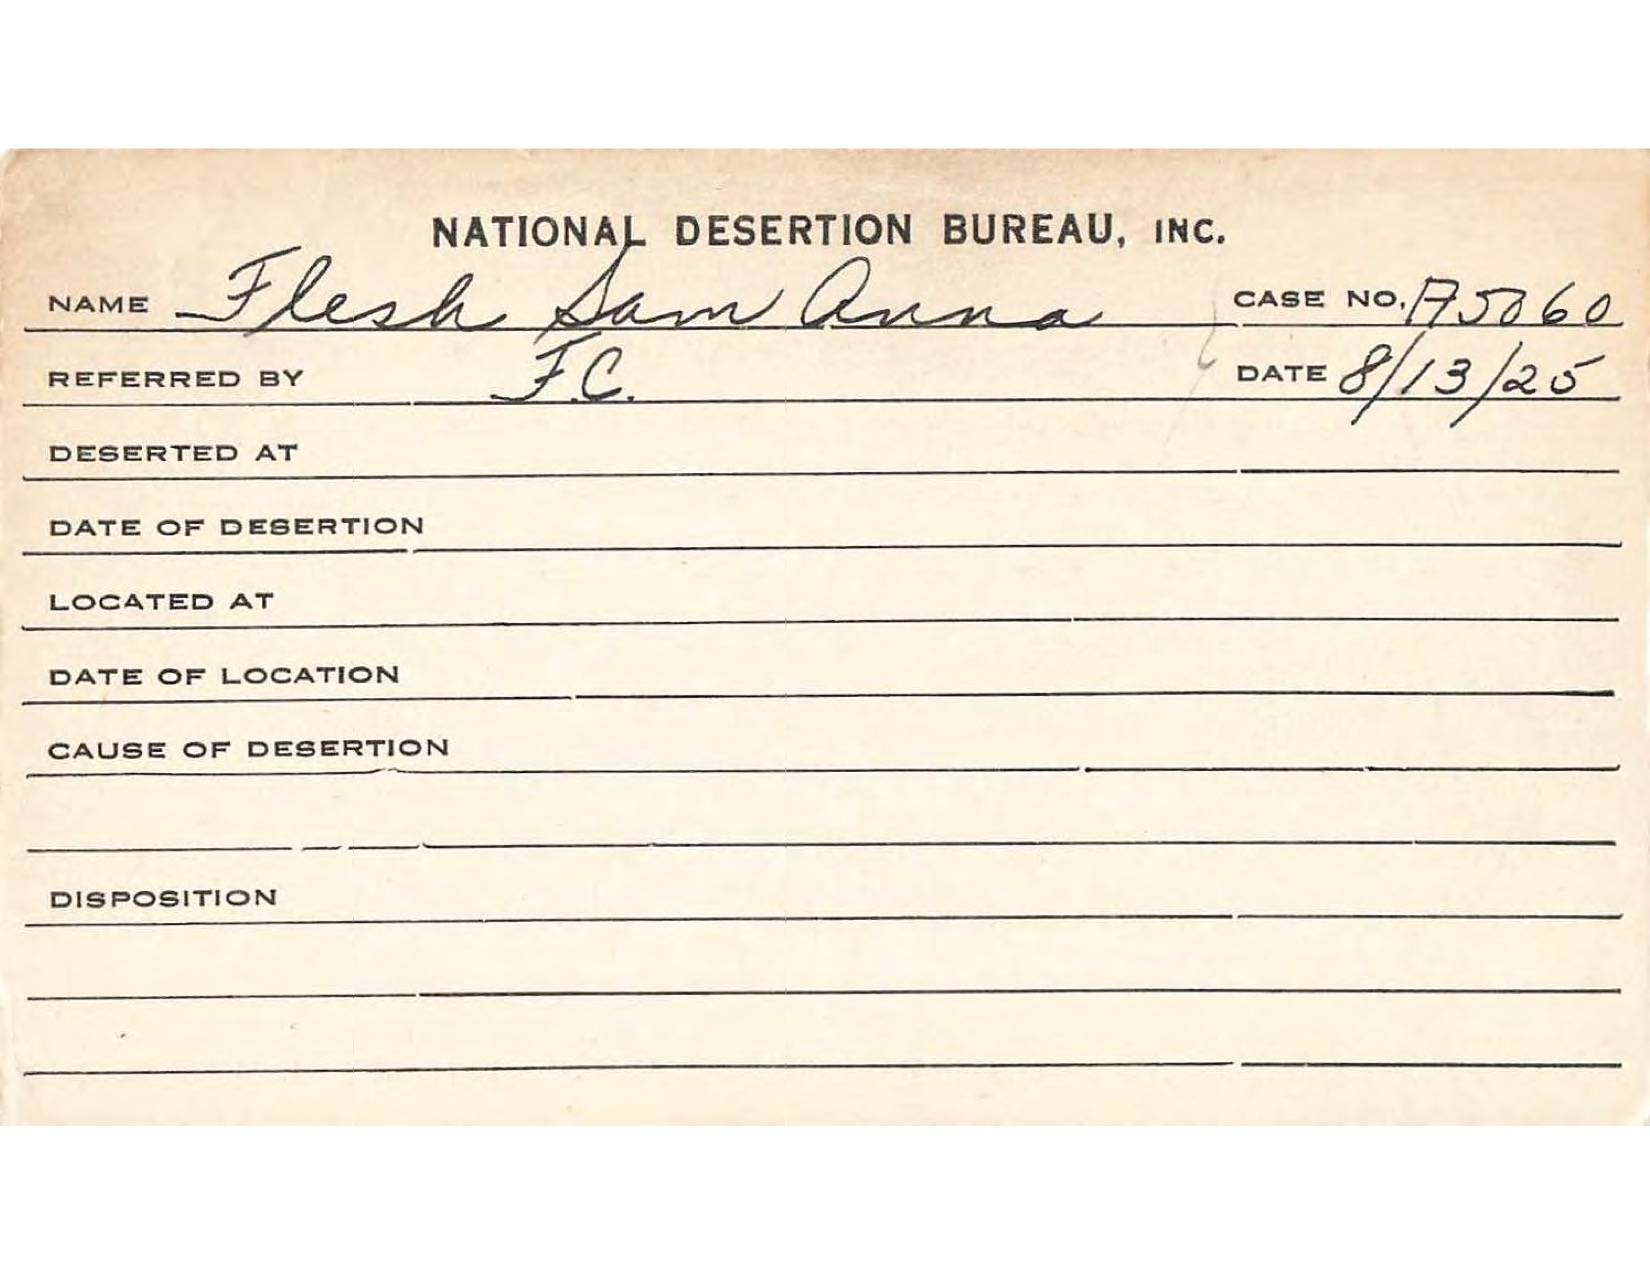 NATIONAL DESERTION BUREAU, INC.
NAME Flesh Sam Anna CASE NO. A5060
REFERRED BY F.C. DATE 8/13/25
DESERTED AT
DATE OF DESERTION
LOCATED AT
DATE OF LOCATION
CAUSE OF DESERTION
DISPOSITION